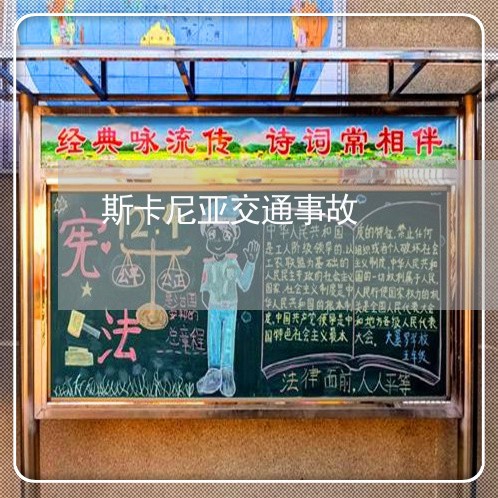 经典咏流传 诗词常相伴
斯卡尼亚交通事故
12.4
宪法
公平 公正
总章程
中华人民共和国
是工人阶级领导的,以
工农联盟为基础的
人民民主专政的社会主义
国家,社会主义制度是中
华人民共和国的根本制
度,中国共产党领导是中
国特色社会主义最本
质的特征,禁止任何
组织或者个人破坏社会
主义制度,中华人民共和
国的一切权利属于人民,
人民行使国家权力的机
关是全国人民代表大会
和地方各级人民代表
大会.
五年级
法律面前,人人平等